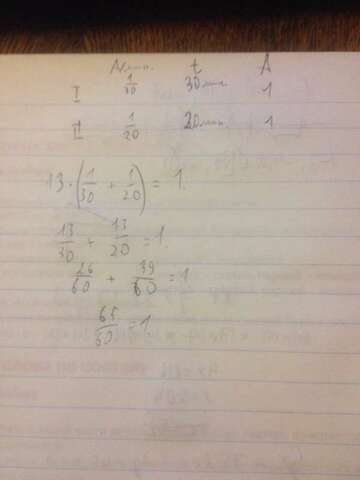 A/мин. t A
I 1/30 30 мин 1
II 1/20 20 мин. 1
13 · (1/30 + 1/20) = 1.
13/30 + 13/20 = 1.
26/60 + 39/60 = 1
65/60 = 1.